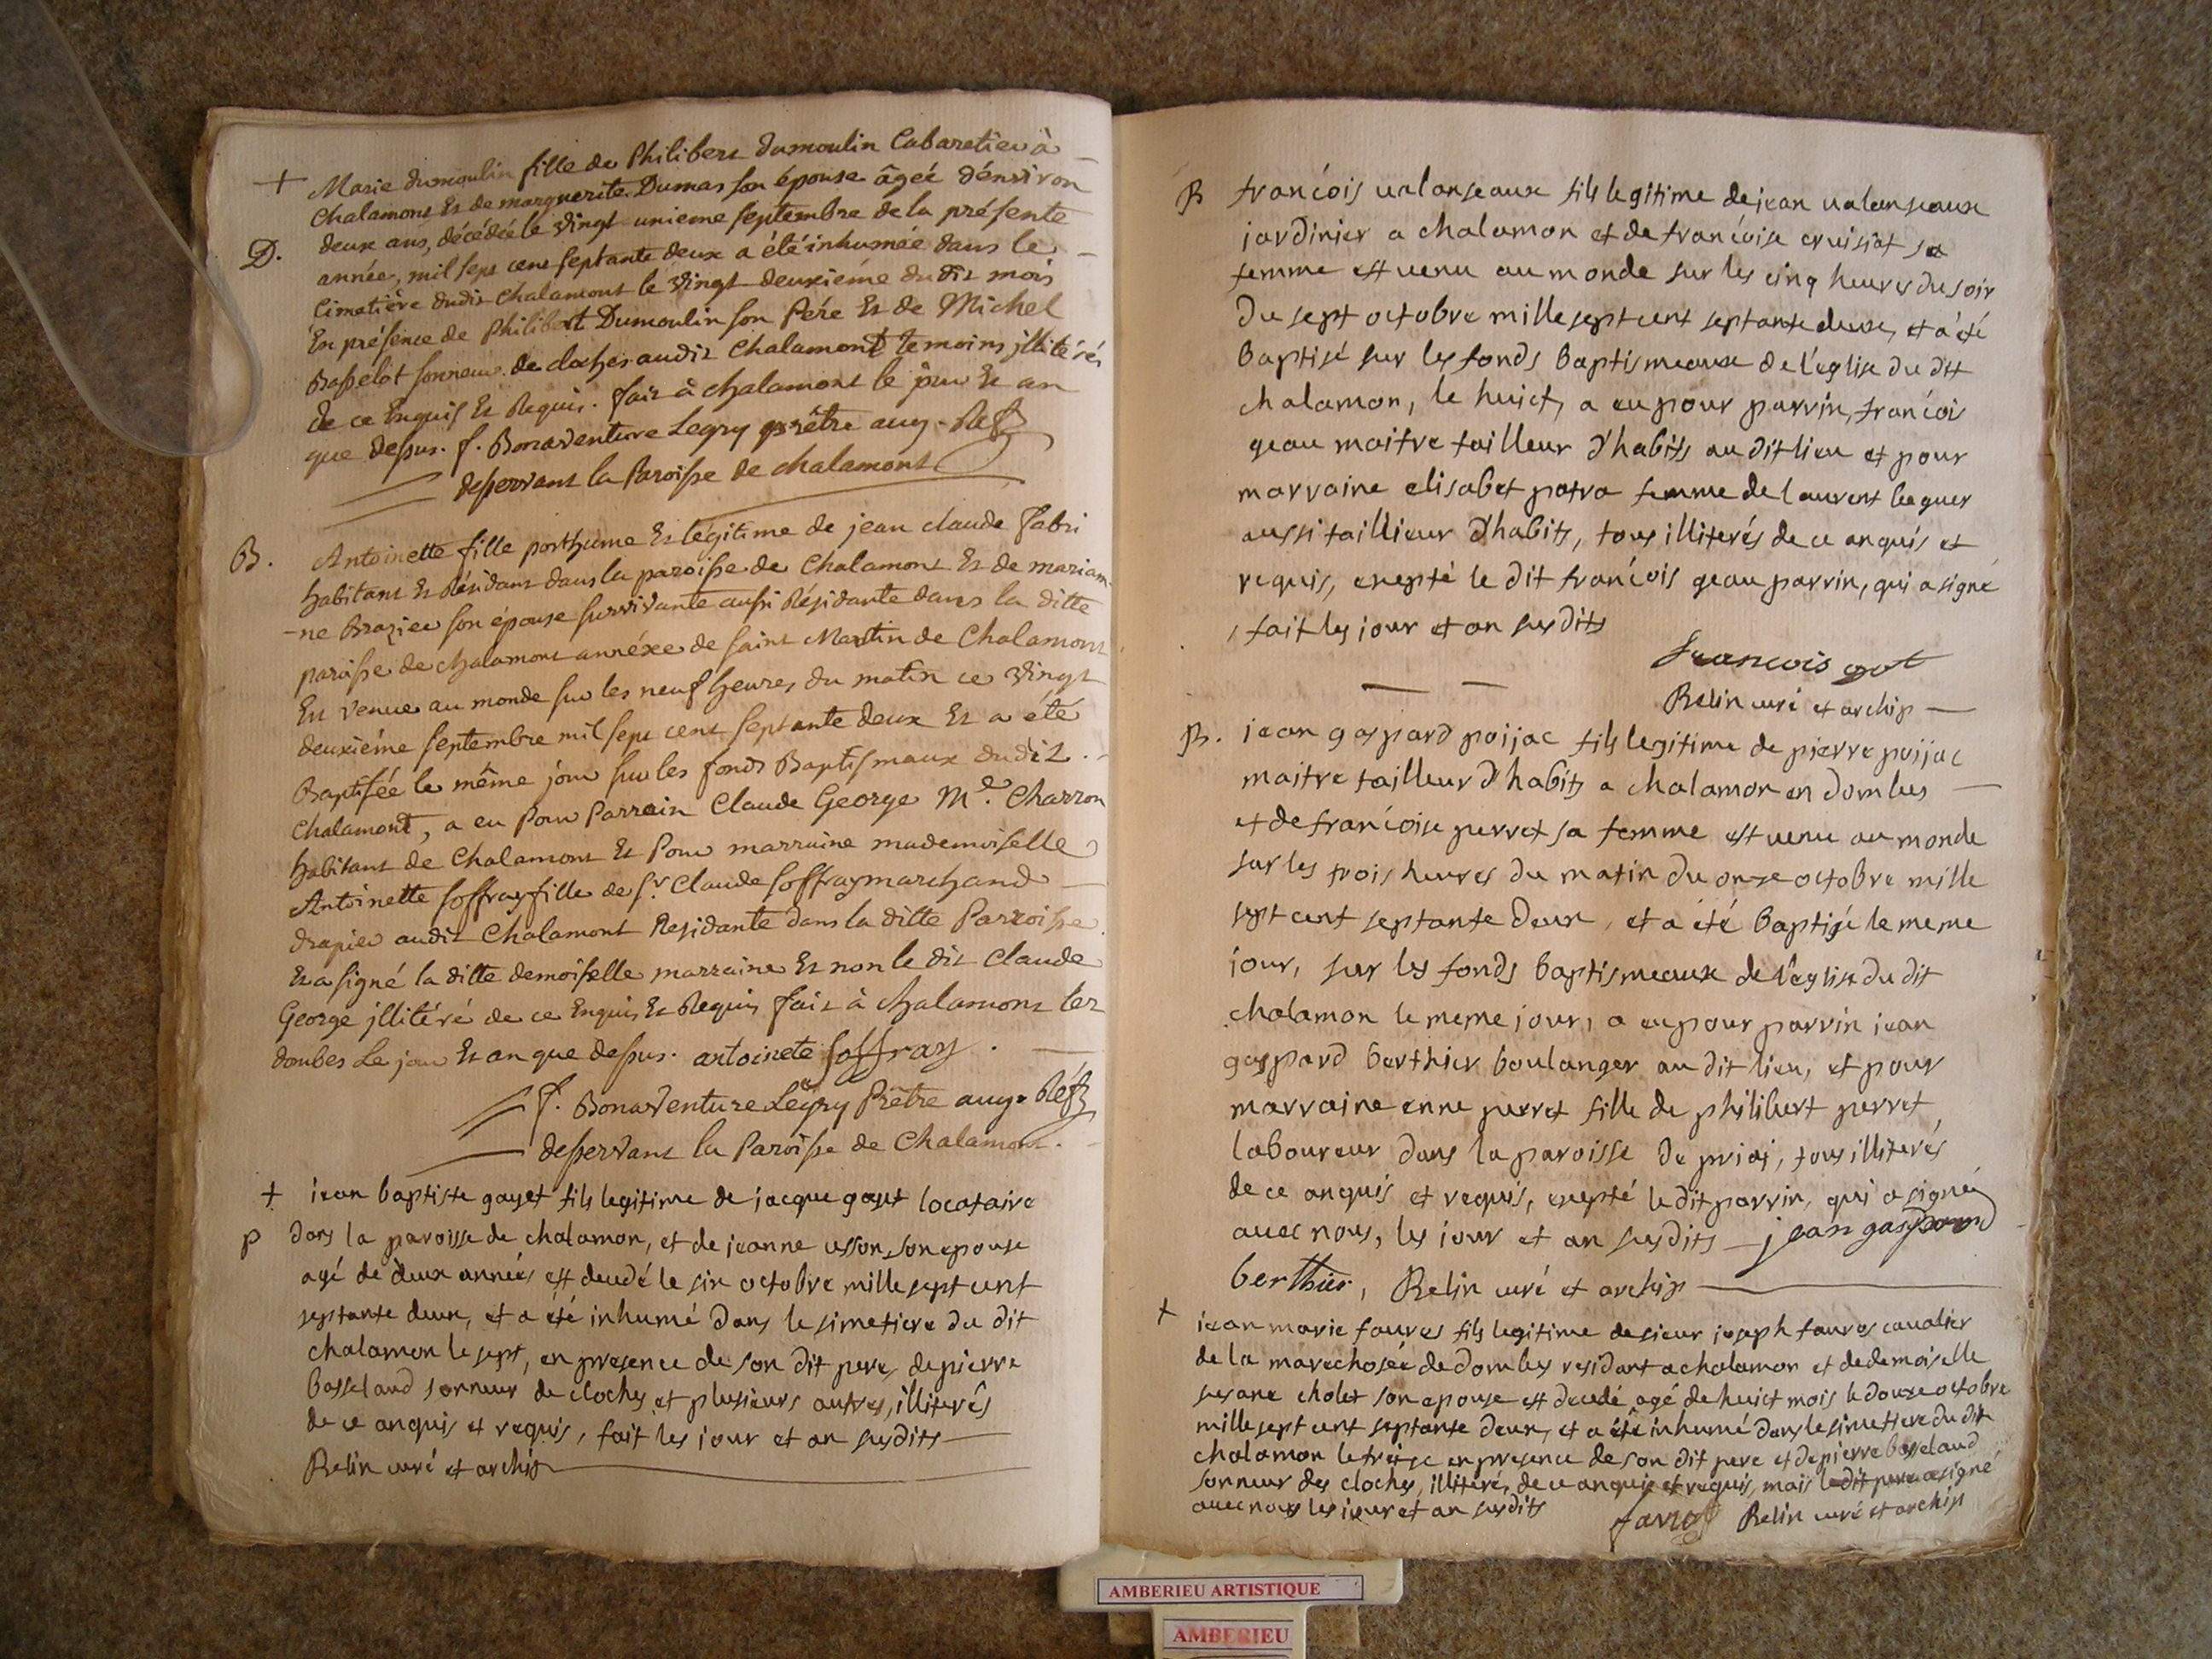 + Marie dumoulin fille de Philibert dumoulin Cabaretier à
Chalamont Et de marguerite Dumas son épouse âgée d'énviron
D. deux ans, décédée le vingt unieme septembre de la présente
année, mil sept cent septante deux a été inhumée dans le
Cimetière dudit Chalamont le vingt deuxiéme du dit mois
En présence de Philibert Dumoulin son Pére Et de Michel
Basselot sonneur de cloches audit Chalamont temoins jllitérés
de ce Enquis Et Requis. fait à chalamont le jour Et an
que dessus. f. Bonaventure Legry prêtre aug. Réf
desservant la Paroisse de chalamont
B. Antoinette fille posthume Et légitime de jean claude fabri
habitant Et Résidant dans la paroisse de Chalamont Et de marian
-ne Brazier son épouse survivante aussi Résidante dans la ditte
paroisse de chalamont annéxe de saint Martin de Chalamont
Est venue au monde sur les neuf heures du matin ce vingt
deuxiéme septembre mil sept cent septante deux Et a été
Baptisée le même jour sur les fonds Baptismaux dudit
Chalamont, a eu Pour Parrain Claude George Me. Charron
habitant de Chalamont Et Pour marraine mademoiselle
Antoinette soffray fille de sr. Claude soffray marchand
drapier audit Chalamont Residante dans la ditte Parroisse
Et a signé la ditte demoiselle marraine Et non le dit Claude
George jllitéré de ce Enquis Et Requis fait à chalamont len
dombes Le jour Et an que dessus. antoinete soffray.
f. Bonaventure Legry Prêtre aug. Réf
desservant la Paroisse de Chalamont.
+ jean baptiste gayet fils legitime de jacque gayet locataire
p dans la paroisse de chalamon, et de jeanne usson son epouse
agé de deux années est decedé le six octobre mille sept cent
septante deux, et a été inhumé dans le simetiere du dit
chalamon le sept, en presence de son dit pere, de pierre
basseland sonneur de cloches et plusieurs autres, illiterés
de ce anquis et requis, fait les jour et an susdits
Relin curé et archip
B francois valanseaux fils legitime de jean valanseaux
jardinier a chalamon et de francoise cruisiat sa
femme est venu au monde sur les cinq heures du soir
du sept octobre mille sept cent septante deux, et a été
baptisé sur les fonds baptismeaux de l'eglise du dit
chalamon, le huict, a eu pour parrin, francois
geau maitre tailleur d'habits au dit lieu et pour
marraine elisabet patra femme de laurent beguer
aussi taillieur d'habits, tous illiterés de ce anquis et
requis, exepté le dit francois geau parrin, qui a signé
, fait les jour et an susdits
francois
Relin curé et archip
B. jean gaspard poijac fils legitime de pierre poijac
maitre tailleur d'habits a chalamon en dombes
et de francoise perret sa femme est venu au monde
sur les trois heures du matin du onze octobre mille
sept cent septante deux, et a été baptisé le meme
jour, sur les fonds baptismeaux de l'eglise du dit
chalamon le meme jour, a eu pour parrin jean
gaspard berthier boulanger au dit lieu, et pour
marraine enne perret fille de philibert perret
laboureur dans la paroisse de priaj, tous illiterés
de ce anquis et requis, exepté le dit parrin, qui a signé
avec nous, les jour et an susdits jean gaspard
berthier, Relin curé et archip
+ jean marie faures fils legitime de sieur joseph faures cavalier
de la marechosée de dombes residant a chalamon et de demoiselle
susane cholet son epouse est decedé agé de huict mois le douze octobre
mille sept cent septante deux, et a été inhumé dans le simetiere du dit
chalamon le treise en presence de son dit pere et de pierre basseland
sonneur des cloches, illiteré, de ce anquis et requis, mais le dit pere a signé
avec nous les jour et an susdits
Relin curé et archip
AMBERIEU ARTISTIQUE
AMBERIEU